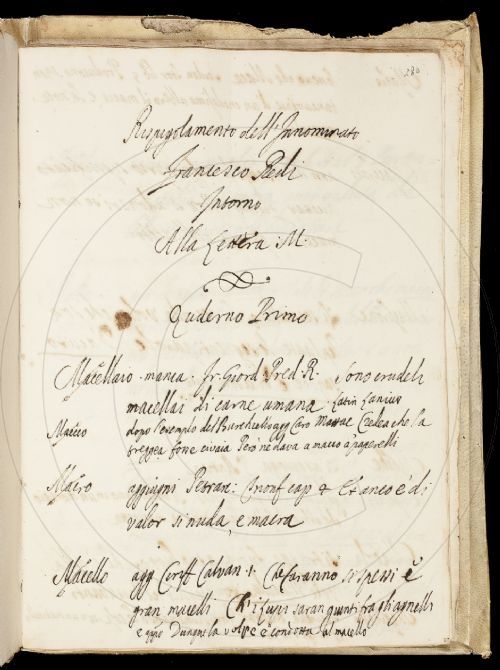 280
Rispigolamento dell'Innominato
Francesco Redi
Intorno
Alla Lettera .M.
Quderno Primo
Macellaio. manca. Fr. Giord. Pred. R. Sono crudeli
macellai di carne umana. Latin Lanius
Macco dopo l'esempio del Burchiello agg Caro Mattac Credea che la
treggea fosse civaia Però ne dava a macco a' paperelli
Macro aggiugni Petrar: cap Et anco è di
valor si nuda, e macra
Macello agg Ciriff Calvan 1. Che faranno si spessi e
gran macelli Ch'i fussi saran giunti fra gli agnelli
e Dunque la volpe è condotta al macello